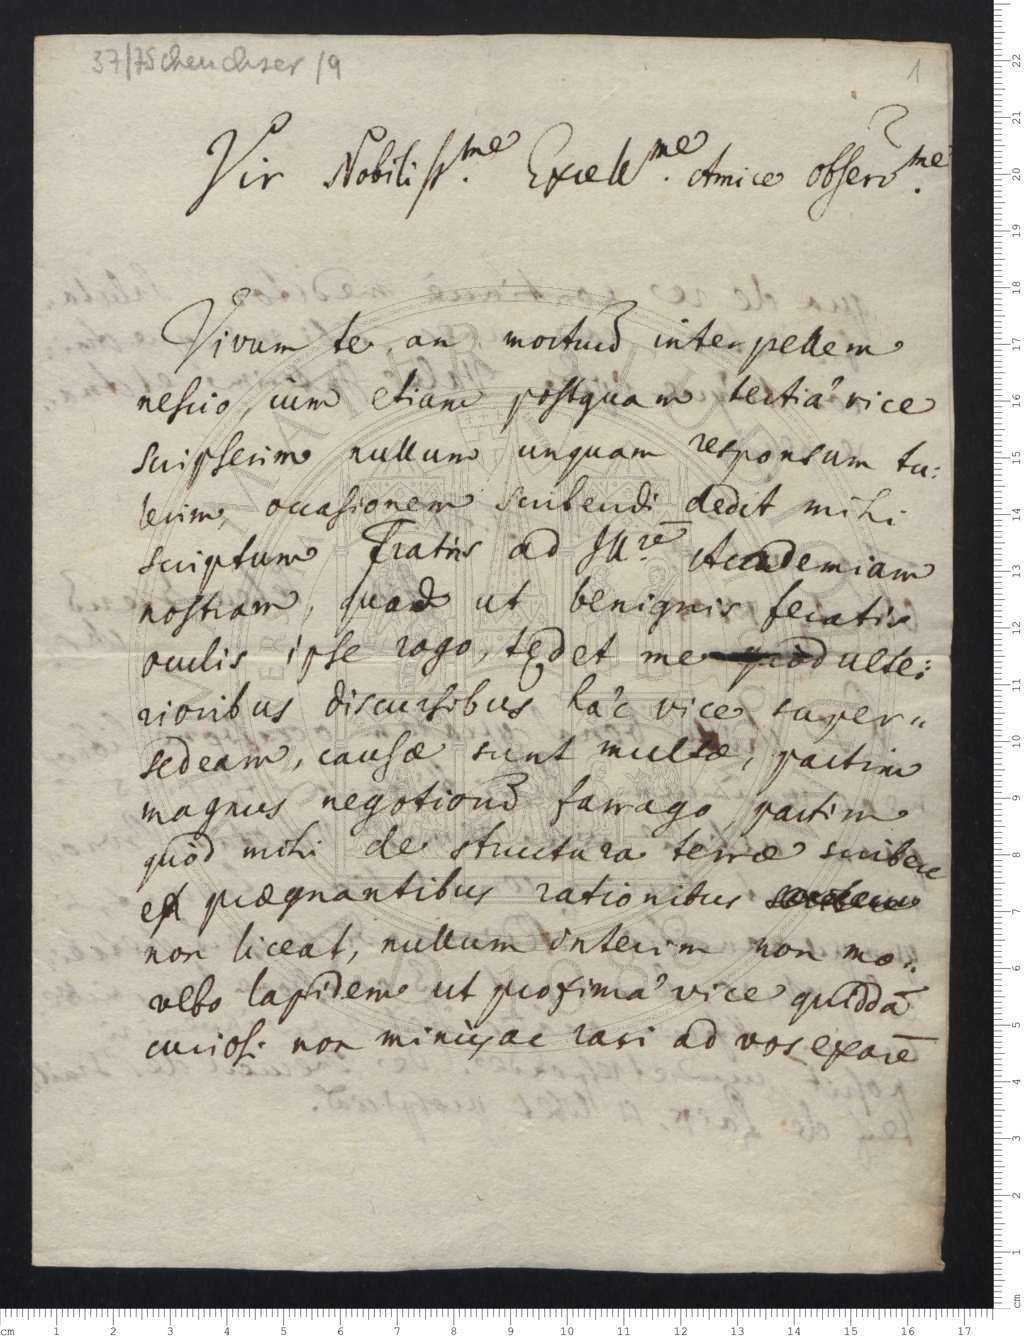 37/7 Scheuchzer /9
1
Vir Nobiliss.me Excell.me Amice observ.me
Vivum te, an mortuū interpellem
nescio, cum etiam postquam tertiâ vice
scripserim nullum unquam responsum tu:
lerim, occasionem scribendi dedit mihi
scriptum Fratris ad Ill.rē Academiam
nostram, quod ut benignis
oculis ipse rogo, tędet me quòd ulte:
rioribus discursibus hâc vice super„
sedeam, causæ sunt multæ, partim
magnus negotiorū farrago, partim
quòd mihi de structura terræ scribere
ex prægnantibus rationibus
non liceat, nullum interim non mo„
vebo lapidem ut proximâ vice quiddā
curiosi non minùs ac rari ad vos exarē